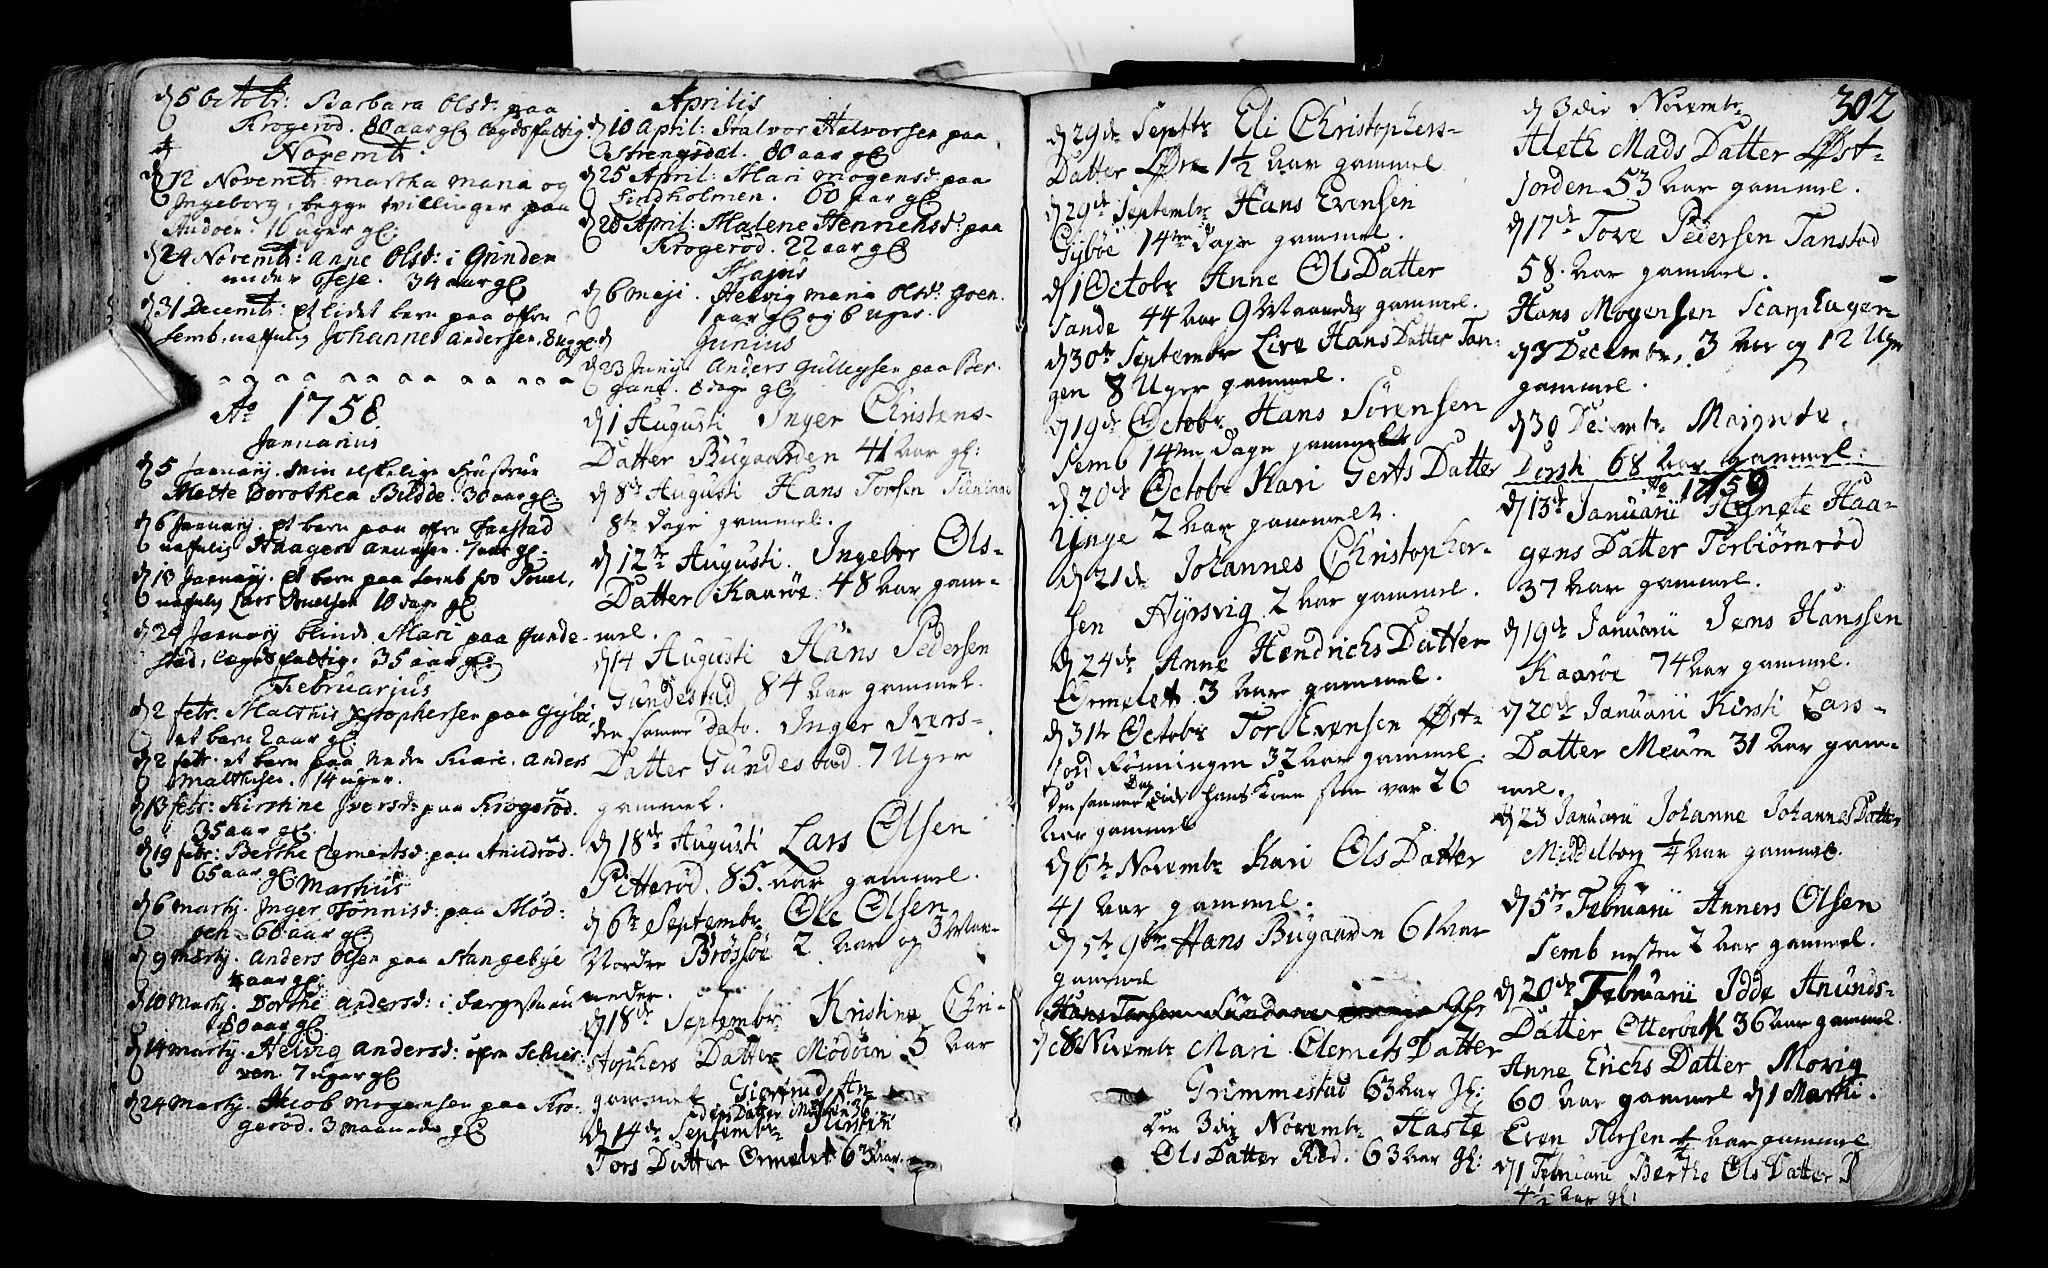 d 5 octobr: Barbara Olsd: paa
Krogerød. 80 aar gl. lægdsfattig.
Novembr.
d 12 Novembr: martha maria og
Ingeborg, begge tvillinger paa
Andøen. 16 uger gl.
d 24 Novembr: anne Olsd: i Grinden
under . 34 aar gl.
d 31 Decembr: et lidet barn paa ofre
Semb, naffnlig Johannes andersen, 8
Ao 1758
Januarius
d 5 Januarij. min elskelige Hustrue
Mette Dorothea Budde. 30 aar gl.
d 6 Januarij. et barn paa ofre Faastad
naffnlig Haagen . 7 aar gl.
d 13 Januarij. et barn paa Semb hos ,
naffnlig Lars 10 dage gl.
d 24 Januarij blinde Mari paa Gunde-
stad, lægdsfattig. 35 aar gl.
Februarius
d 2 febr: Malthis Xstophersen paa Gybøe,
et barn 2 aar gl.
d 2 febr: et barn paa nedre . anders
Malthisen. 14 uger.
d 13 febr: Kirstine Iversd: paa Krogerød.
35 aar gl.
d 19 febr: Berthe Clementsd: paa Anildrød.
65 aar gl.
Martius
d 6 martij. Inger Tønnisd: paa Mød-
gen. 68 aar gl.
d 9 martij. anders Olsen paa Stangebye
4 aar gl.
d 10 Martij. Dorthe andersd: i
80 aar gl.
d 14 martij. Helvig andersd: ofre Schier-
ven. 7 uger gl.
d 24 Martij. Jacob mogensen paa Kro-
gerød. 3 maaneder gl.
Aprilis
d 10 April: Halvor Halvorsen paa
Strengsdal. 80 aar gl.
d 25 April: Mari mogensd: paa
Lindholmen. 60 aar gl.
d 28 April: Malene Henrichsd: paa
Krogerød. 22 aar gl.
Majus
d 6 maji. Helvig maria Olsd: Goen.
1 aar gl og 6 uger.
d Junius
d 23 Junij Anders Gullichsen paa Ber-
gane. 8 dage gl.
d 1 Augusti Inger Christens-
Datter Bugaarden 41 aar gl:
d 8de Augusti Hans Torsen Sundene
8te dage gammel.
d 12te Augusti. Ingebor Ols-
Datter Kaarøe 48 aar gam-
mel.
d 14 Augusti Hans Pedersen
Gundestad 84 aar gammel.
den samme dato. Inger Ivers-
Datter Gundestad 7 Uger
gammel.
d 18de Augusti Lars Olsen
Pitterød. 85. aar gammel.
d 6te Septembr Ole Olsen
Nordre Brøssøe 2 aar og 3 Maa-
neder.
d 18de Septembr Kristine Chri-
stophers Datter Mødøen 5 aar
gammel Giertrud An-
ders Datter 36
d 14de Septembr Kirstin
Tors Datter Ormelet 63 aar.
302
d 29de Septbr Eli Christophers-
Datter Øre 1½ aar gammel
d 29de Septembr Hans Evensen
Gybøe 14ten dage gammel.
d 1 Octobr Anne Ols Datter
Sande 44 aar 9 Maaneder gammel.
d 30te Septembr Live Hans Datter Tan-
gen 8 Uger gammel.
d 19de Octobr Hans Sørensen
Semb 14ten dage gammel
d 20de Octobr Kari Gerts Datter
Unge 2 aar gammel.
d 21de Johannes Christopher-
sen Nyrsvig 2 aar gammel.
d 24de Anne Hendrichs Datter
Ormelet 3 aar gammel.
d 31te Octobr Tor Evensen Øst-
jord Rønningen 32 aar gammel.
den samme Dag døde hans Kone som var 26
aar gammel
d 6te Novembr Kari Ols Datter
41 aar gammel.
d 7de 9br Hans Bugaarden 61 aar
gammel
Hans Torsen Sundene
d 8 Novembr Mari Clemets Datter
Grimmestad 63 aar gl:
den 3die Novembr Haste
Ols Datter Rød. 63 aar gl:
d 3die Novembr
Aleth Mads Datter Øst-
jorden 53 aar gammel.
d 17de Tore Pedersen Tanstad
58 aar gammel.
Hans Mogensen Scarphagen
d 3 Decembr, 3 aar og 12 Uger
gammel.
d 30 Decembr Margrete
Dorsh 68 aar gammel.
Ao 1759
d 13de Januarii Agnete Haa-
gens Datter Torbiørnrød
37 aar gammel.
d 19de Januarii Jens Hanssen
Kaarøe 74 aar gammel.
d 20de Januarii Kirsti Lars-
Datter Meum 31 aar gam-
mel.
d 23 Januarii Johanne Johannes Datter
Middelborg ¼ aar gammel.
d 5te Februarii Anners Olsen
Semb nesten 2 aar gammel.
d 20de Februarii Idde Anunds-
Datter Otterbek 36 aar gammel.
Anne Erichs Datter Morig
60 aar gammel d 1 Martii.
Even Torsen ¼ aar gammel
d 1 Februarii Berthe Ols Datter
4½ aar gl: